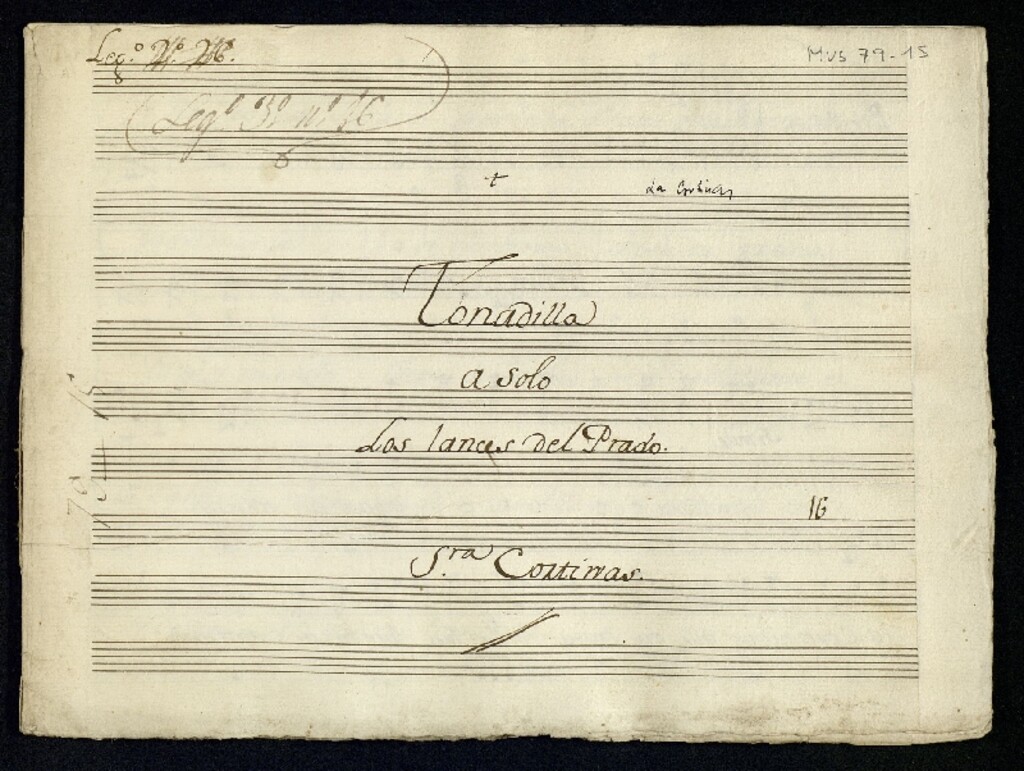 Leg.º
MUS 79-15
Leg.º 3º nº 16
La Cortinas
Tonadilla
a solo
Los lances del Prado.
16
S.ra Cortinas.
79-15